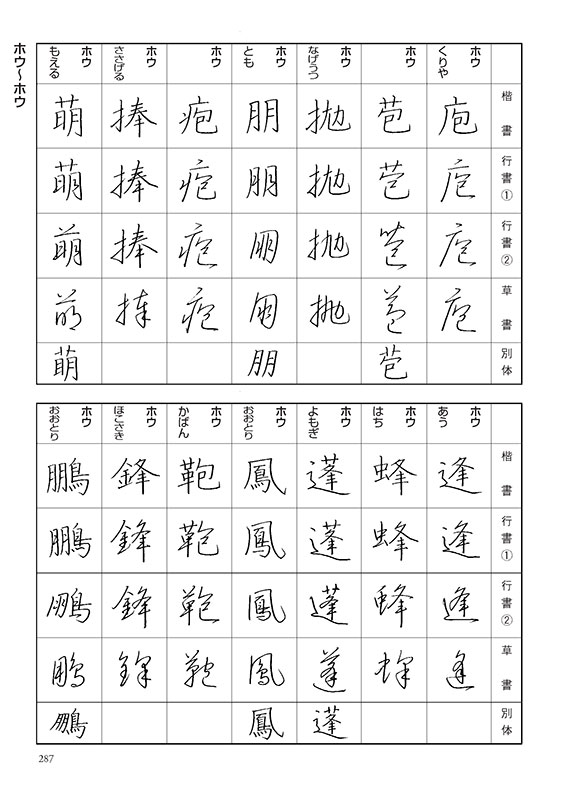 楷書 行書① 行書② 草書 別体
ホウ くりや 庖 庖 庖 庖
ホウ 苞 苞 苞 苞 苞
ホウ なげうつ 抛 抛 抛 抛
ホウ とも 朋 朋 朋 朋 朋
ホウ 疱 疱 疱 疱
ホウ ささげる 捧 捧 捧 捧
ホウ もえる 萌 萌 萌 萌 萌
楷書 行書① 行書② 草書 別体
ホウ あう 逢 逢 逢 逢
ホウ はち 蜂 蜂 蜂 蜂
ホウ よもぎ 蓬 蓬 蓬 蓬 蓬
ホウ おおとり 鳳 鳳 鳳 鳳 鳳
ホウ かばん 鞄 鞄 鞄 鞄
ホウ ほこさき 鋒 鋒 鋒 鋒
ホウ おおとり 鵬 鵬 鵬 鵬 鵬
ホウ〜ホウ
287